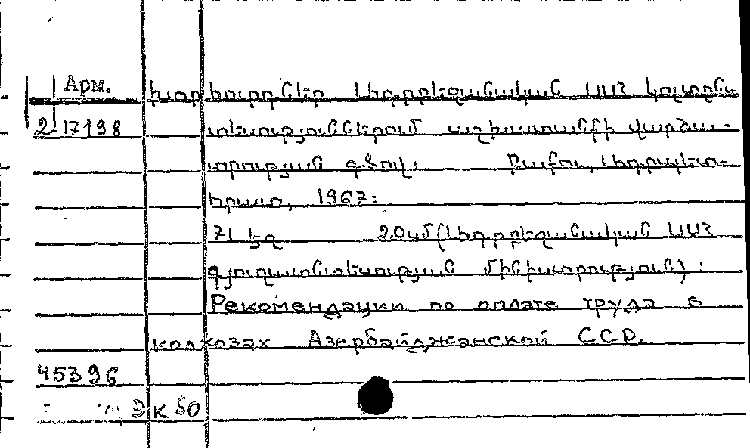 Арм.
Խորհուրդներ Ադրբեջանական ՍՍՀ կոլտնտ-
2-17198
տեսություններում աշխատանքի վարձա-
տրության գծով։ Բաքու, Ադրպետ-
հրատ, 1967։
71 էջ 20սմ (Ադրբեջանական ՍՍՀ
գյուղատնտեսության մինիստրություն)։
Рекомендации по оплате труда в
колхозах Азербайджанской ССР.
45396
ЭК 50